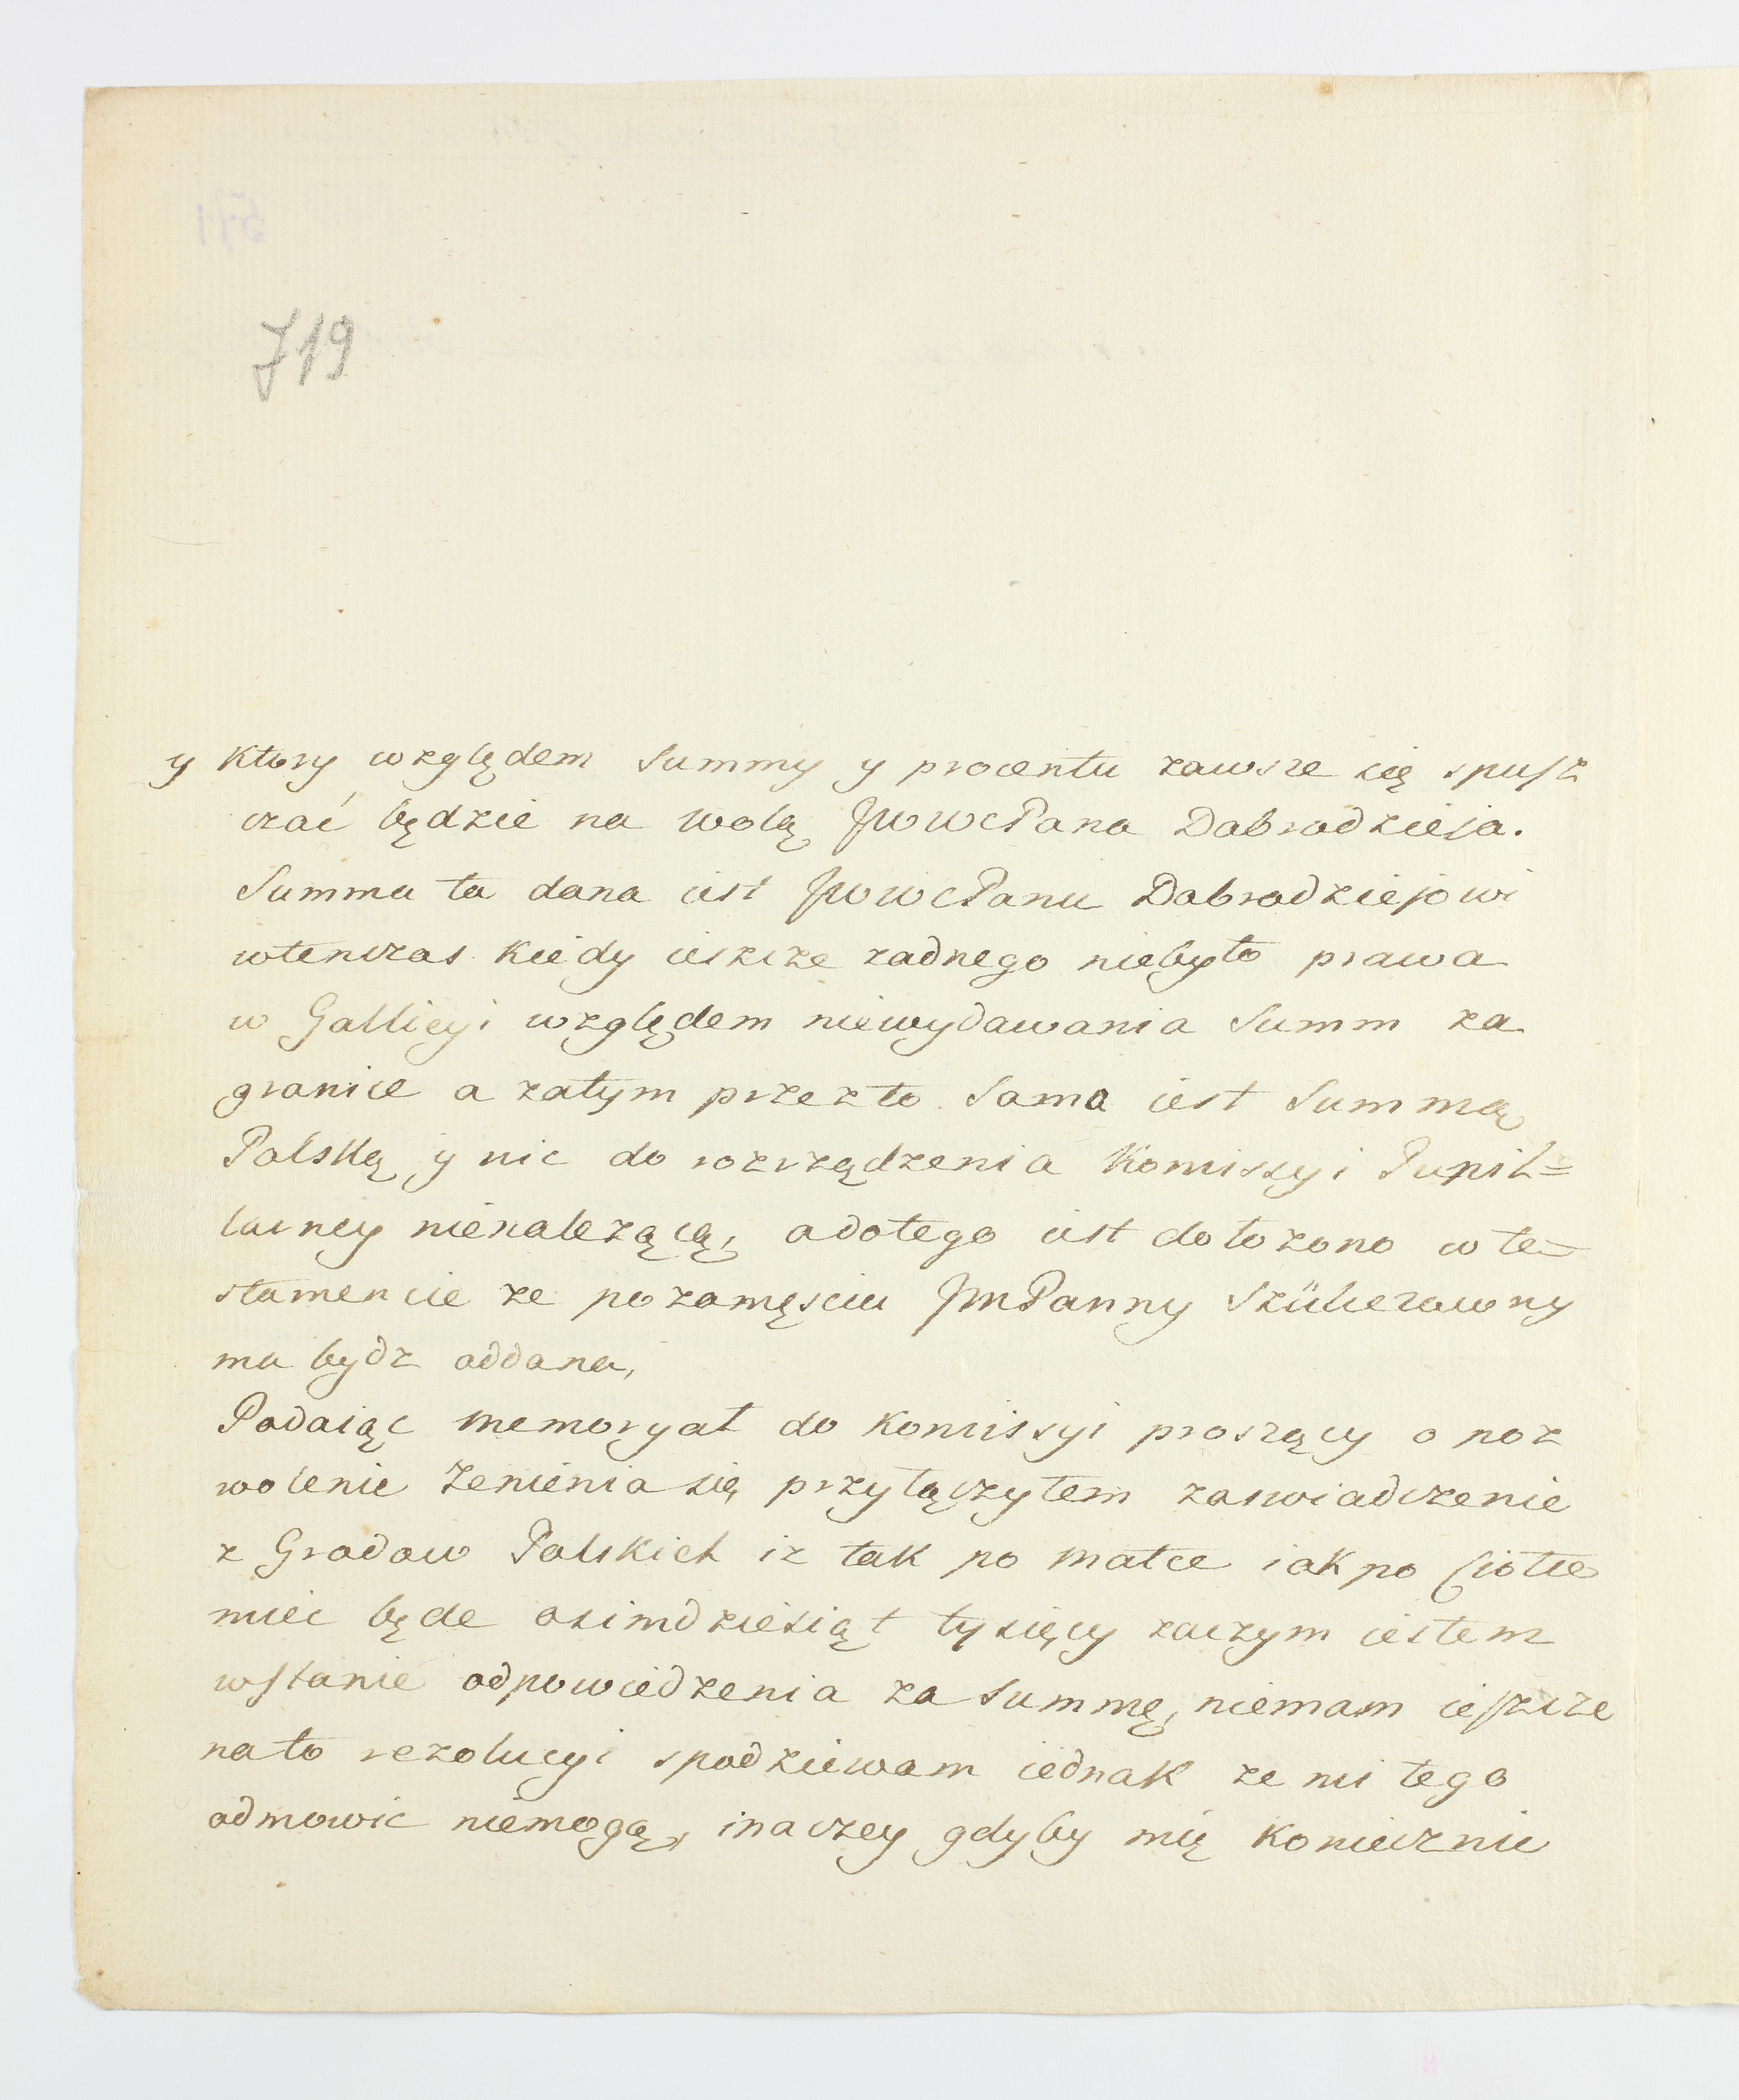 719
y ktory względem Summy y procentu zawsze się spusz
czać będzie na wolą JWWcPana Dobrodzieja.
Summa ta dana iest JWWcPanu Dobrodziejowi
wtenczas kiedy ieszcze zadnego niebyło prawa
w Gallicyi względem niewydawania Summ za
granice a zatym przezto Sama iest Summą
Polską y nic do rozrządzenia Komissyi Pupil=
larney nienalezącą, adotego iest dołozono w te=
stamencie ze pozamęsciu JmPanny Szüllerowny
ma bydz oddana,
Podaiąc memoryał do Komissyi proszący o poz
wolenie żenienia się przyłączyłem zaswiadczenie
z Grodow Polskich iz tak po matce iak po Ciotce
miec będe osimdziesiąt tysięcy zaczym iestem
wstanie odpowiedzenia za Summę, niemam ieszcze
nato rezolucyi spodziewam iednak ze mi tego
odmowic niemogą, inaczey gdyby mię koniecznie